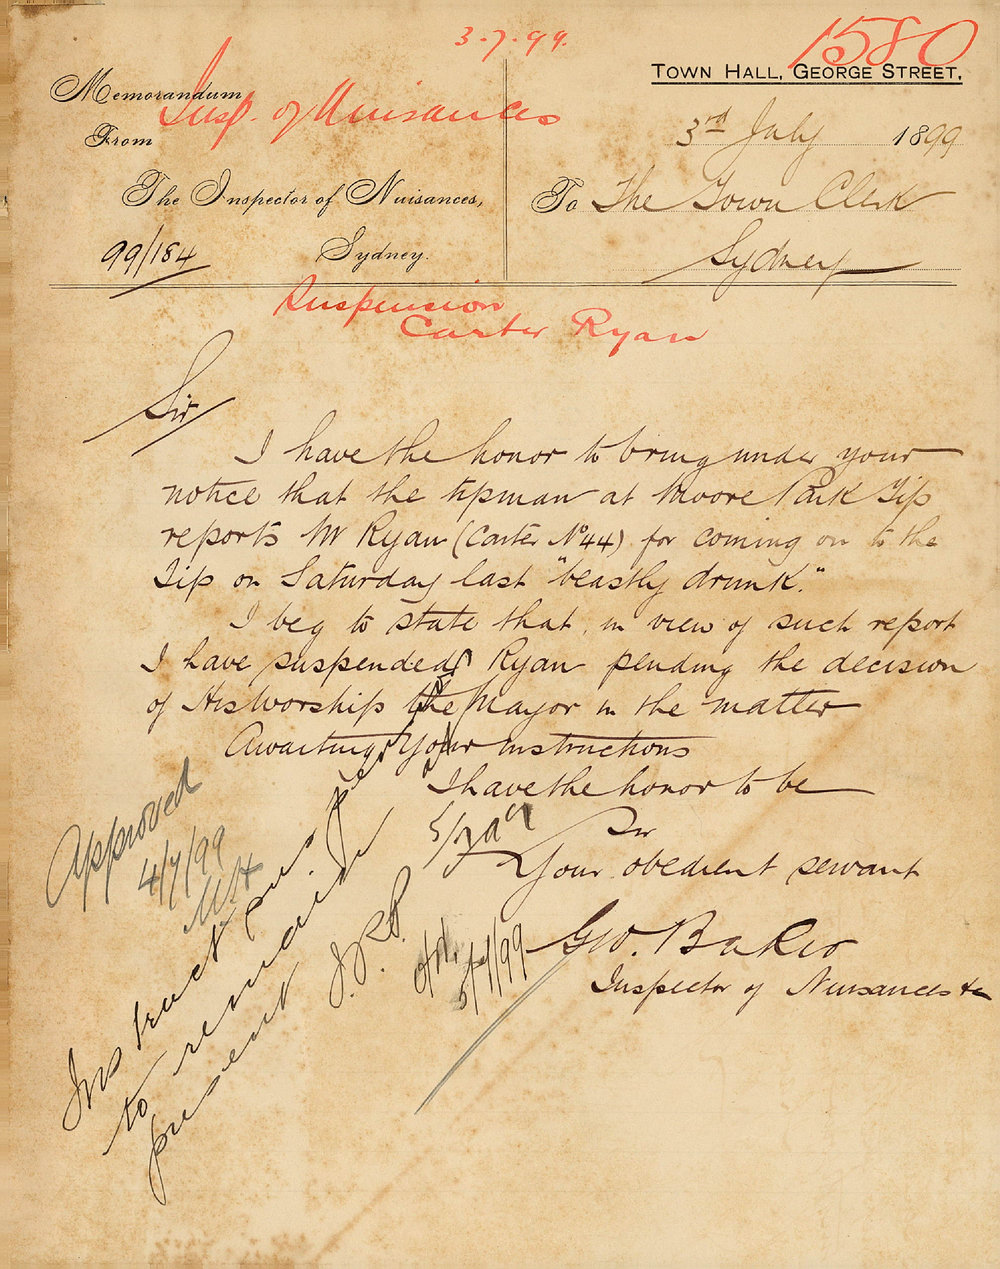 3.7.99.
1580
TOWN HALL, GEORGE STREET,
Memorandum
Insp. of Nuisances
From
3rd July 1899
The Inspector of Nuisances,
To The Town Clerk
99/184
Sydney.
Sydney
Suspension
Carter Ryan
Sir
I have the honor to bring under your
notice that the tipman at Moore Park Tip
reports M Ryan (Carter No 44) for coming on to the
Tip on Saturday last "beastly drunk."
I beg to state that, in view of such report
I have suspended Ryan pending the decision
of His Worship the Mayor in the matter
Awaiting your instructions
I have the honor to be
Sir
Your obedient servant
Geo. Baker
Inspector of Nuisances &c
Approved
4/7/99
Instruct
to remain
present
5/7/99